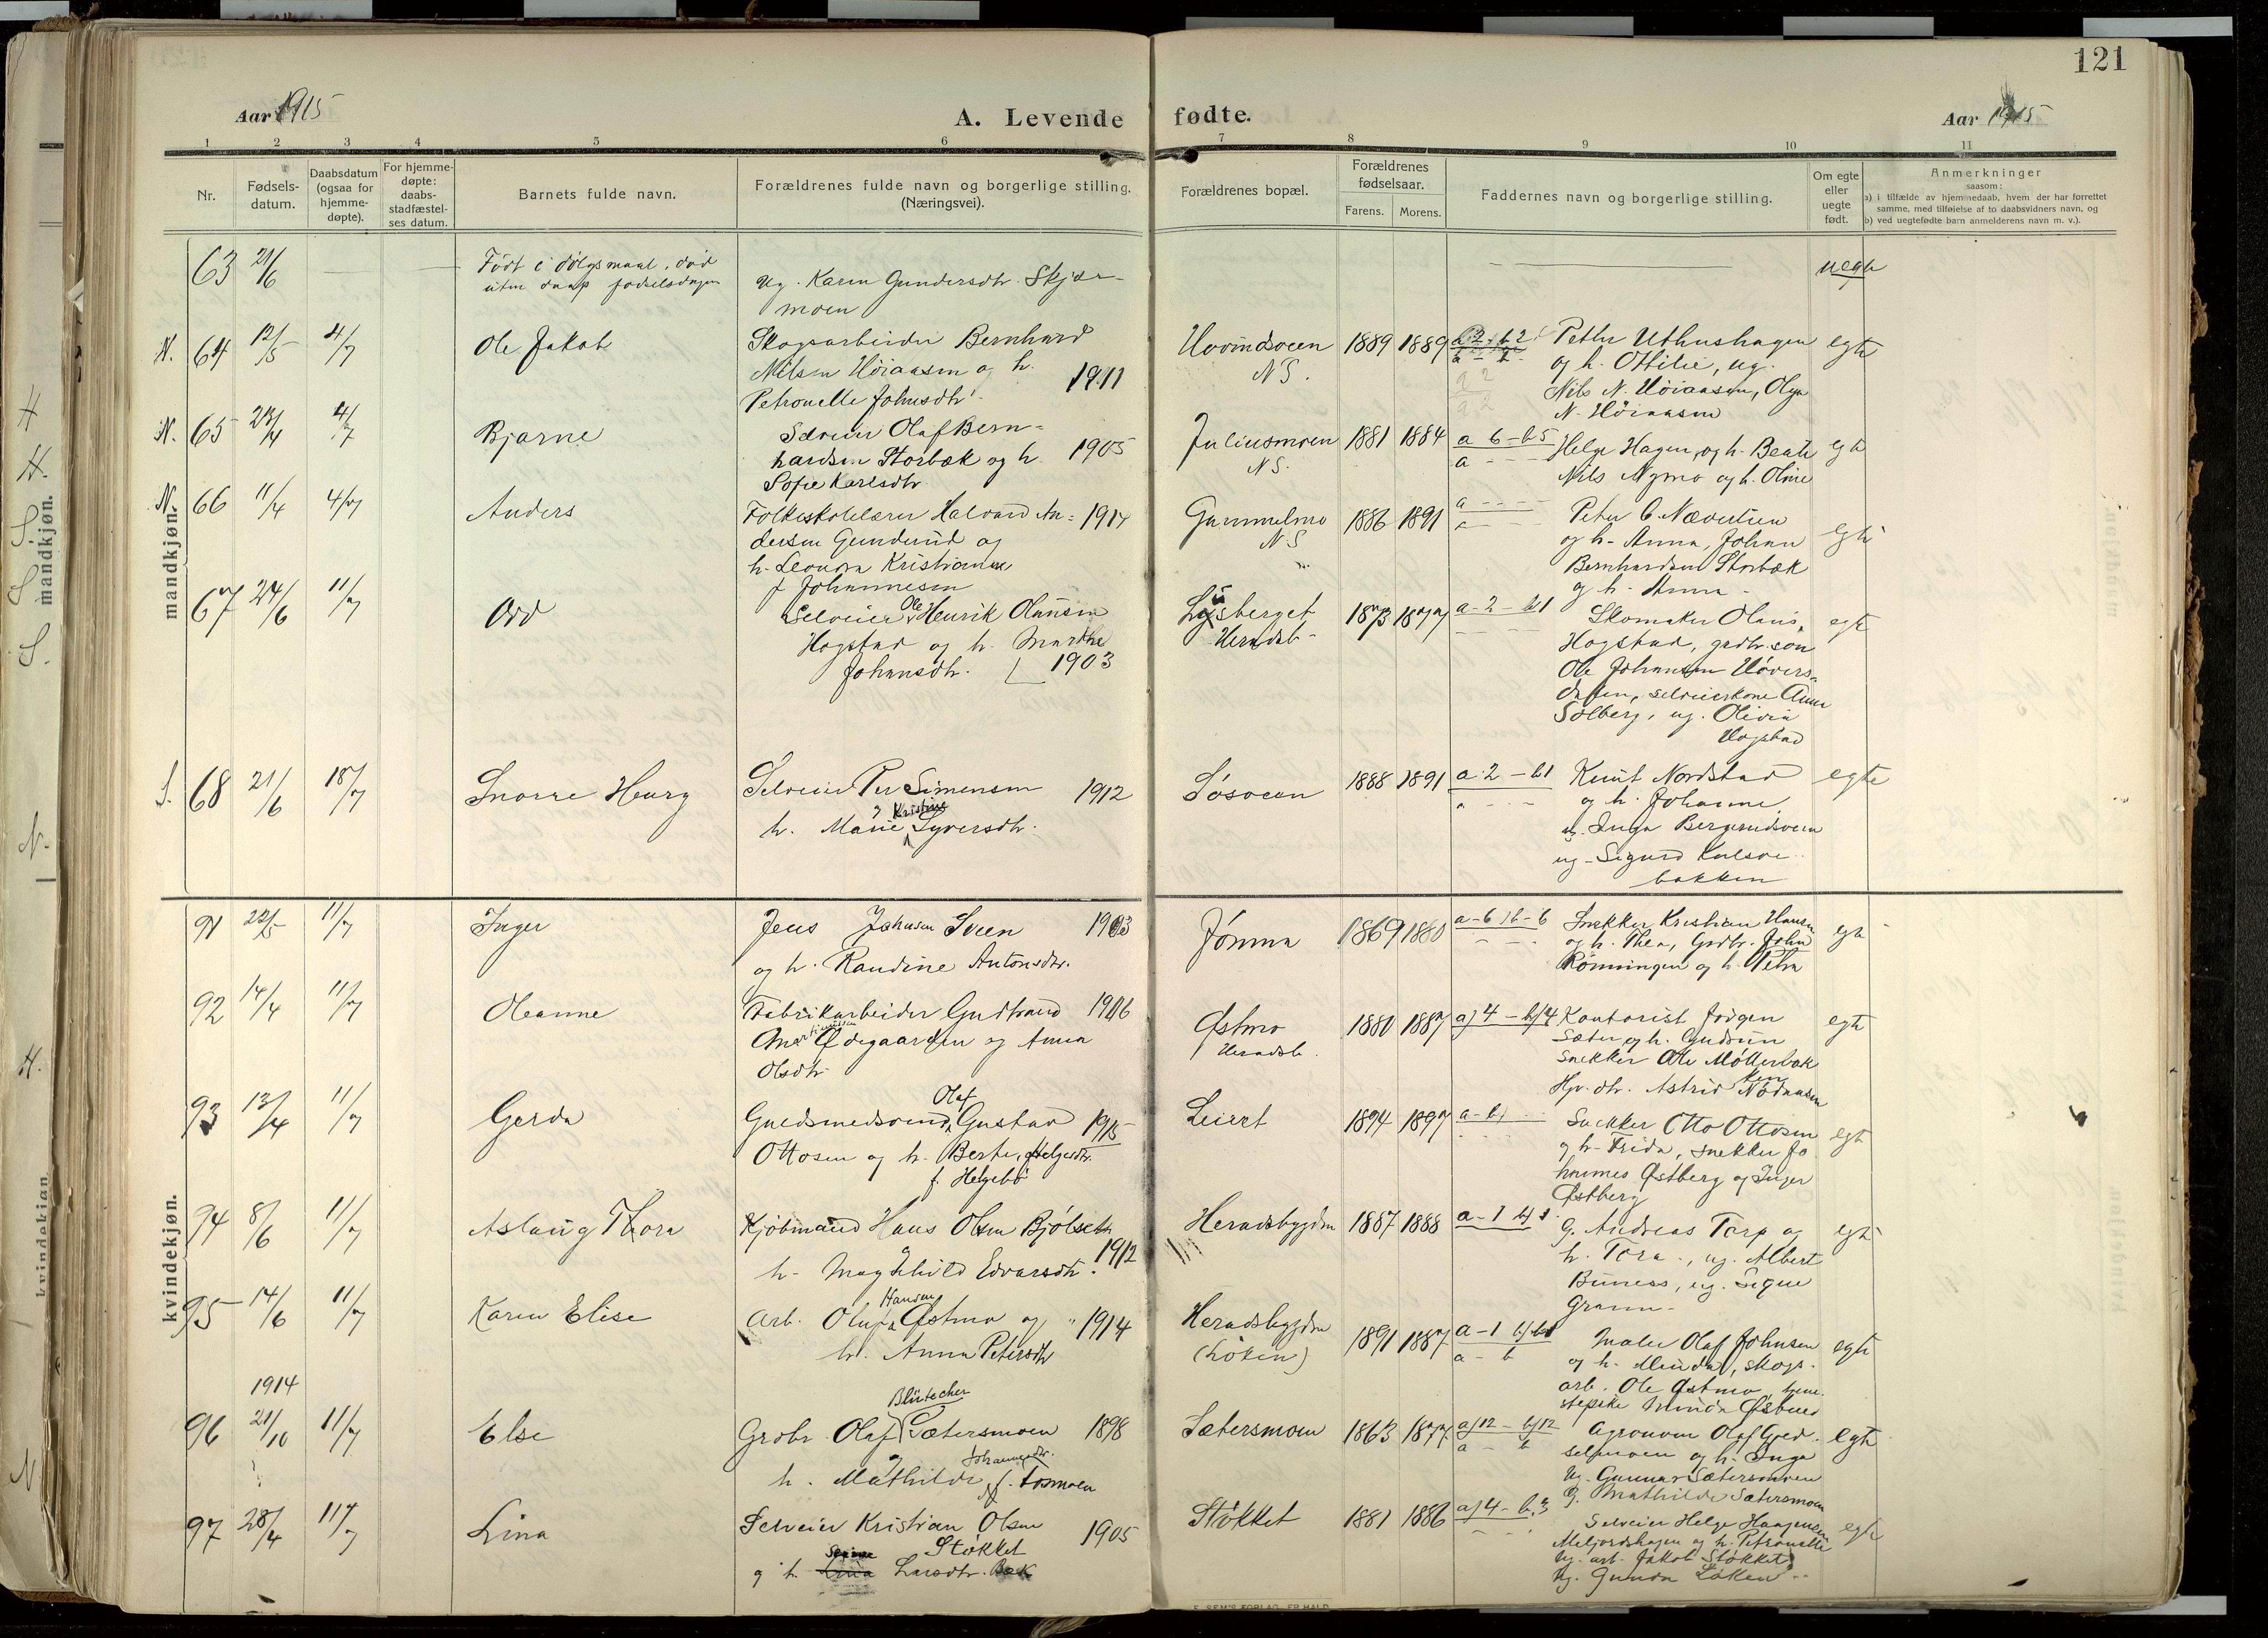 121
Aar 1915
A. Levende fødte.
Aar 1915
1 2 3 4 5 6 7 8 9 10 11
Nr.
Fødsels-
datum.
Daabsdatum
(ogsaa for
hjemme-
døpte).
For hjemme-
døpte:
daabs-
stadfæstel-
ses datum.
Barnets fulde navn.
Forældrenes fulde navn og borgerlige stilling.
(Næringsvei).
Forældrenes bopæl.
Forældrenes
fødselsaar.
Farens. Morens.
Faddernes navn og borgerlige stilling.
Om egte
eller
uegte
født.
Anmerkninger
saasom:
a) i tilfælde av hjemmedaab, hvem der har forrettet
samme, med tilføielse af to daabsvidners navn, og
b) ved uegtefødte barn anmelderens navn m. v.).
mandkjøn.
63 21/6
Født i dølgsmaal, død
uten daap fødselsdagen
Ug. Karen Gundersdtr. Skjær-
moen
uegte
N. 64 12/5 4/7
Ole Jakob
Skogsarbeider Bernhard
Nilsen Høiaasen og h.
Petronelle Johnsdtr. 1911
Hovindsveen
N S.
1889 1889
a 2 b 2
Petter Uthushagen
og h. Ottilie, ug.
Nils N. Høiaasen, Olga
N. Høiaasen
egte
N. 65 23/4 4/7
Bjarne
Selveier Olaf Bern-
hardsen Storbæk og h. 1905
Sofie Karlsdtr
Juliusmoen
N S.
1881 1884
a 6 - b 5
a
Helge Hagen, og h. Beate
Nils Nymo og h. Oline
egte
N. 66 11/4 4/7
Anders
Folkeskolelærer Halvard An- 1914
dersen Gunderud og
h. Leonora Kristiane
f Johannesen
Gammelmo
N S
1886 1891
a
a
Peter C. Nævertien
og h. Anna, Johan
Bernhardsen Storbæk
og h. Anna
egte
67 24/6 11/7
Odd
Selveier Ole Henrik Olaussen
Hogstad og h. Marthe
Johansdtr. 1903
Lusberget
Heradsb.
1873 1877
a - 2 - b 1
Skomaker Olaus
Hogstad, grdbr.søn
Ole Johansen Hovers-
dalen, selveierkone Anna
Solberg, ug. Olivia
Hogstad
egte
S. 68 21/6 18/7
Snorre Henry
Selveier Per Simensen 1912
og Kristine
h. Marie Syversdtr.
Søsveen
1888 1891
a 2 - b 1
a
Knut Nordstad
og h. Johanne,
ug. Inga Bergerudsveen
ug. Sigurd Kulsve-
bakken
egte
kvindekjøn.
91 22/5 11/7
Inger
Jens Johnsen Sveen 1903
og h. Randine Antonsdtr.
Jømna
1869 1880
a - 6 b - 6
Snekker Kristian Hansen
og h. Thea, Grdbr. John
Rønningen og h. Petra
egte
92 14/4 11/7
Oleanne
Fabrikarbeider Gudbrand 1906
Martinussen Ødegaarden og Anna
Olsdtr
Østmo
Heradsb.
1880 1887
a) 4 - b) 4
Kontorist Jørgen
Sæter og h. Gudrun
Snekker Ole Møllerbak
ken
Hpr. dtr. Astrid Nordaasen
egte
93 13/4 11/7
Gerda
Olaf
Guldsmedsvend Gustav 1915
Ottosen og h. Berte, Helgesdtr.
f. Helgebø
Leiret
1894 1897
a - b)
Snekker Otto Ottosen
og h. Frida, snekker Jo
hannes Østberg og Inger
Østberg
egte
94 8/6 11/7
Aslaug Thora
Kjøbmand Hans Olsen Bjølseth
og
h. Magnhild Edvardsdtr. 1912
Heradsbygden
1887 1888
a - 1 b) 1
G. Andreas Torp og
h. Tora, ug. Albert
Buness, ug. Signe
Gramn
egte
95 14/6 11/7
Karen Elise
Hansen
Arb. Oluf Østmo og 1914
h. Anna Petersdtr
Heradsbygden
(Løken)
1891 1887
a - 1 b) 1
a - b
Maler Olaf Johnsen
og h. Minda, skogs-
arb. Ole Østmo, tjene-
stepike Minda Østmo
egte
1914
96 21/10 11/7
Else
Blütecher
Grdbr. Olaf Sætersmoen 1898
og Johannesdtr.
h. Mathilde f. Tosmoen
Sætersmoen
1863 1877
a) 12 - b) 12
a - b
Agronom Olaf Gred-
selmoen og h. Inga
Ug. Gunnar Sætersmoen
G. Mathilde Sætersmoen
egte
97 28/4 11/7
Lina
Selveier Kristian Olsen 1905
Støkket
og h. Larsdtr. Bæk
Støkket
1881 1886
a) 4 - b. 3
Selveier Helge Haagensen
Meljordshagen og h. Petronelle
Ug. arb. Jakob Støkket
Ug. Gunda Løken
egte